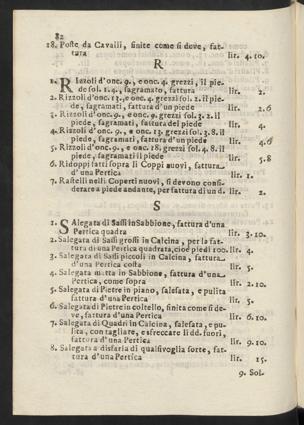 82
18. Poste da Cavalli, finite come si deve, fat-
tura lir. 4. 10.
R
1. Rizzoli d'onc. 9., e onc. 4. grezzi, il pie-
de sol. 1. 4., sagramato, fattura lir. 2.
2. Rizzoli d'onc. 13., e onc. 4. grezzi sol. 2. il pie-
de, sagramati, fattura d'un piede lir. 2. 6
3. Rizzoli d'onc. 9., e onc. 9. grezzi sol. 3. 2. il
piede, sagramati, fattura del piede lir. 4.
4. Rizzoli d'onc. 9., e onc. 13. grezzi sol. 3. 8. il
piede, sagramati, fattura d'un piede lir. 4. 6
5. Rizzoli d'onc. 9., e onc. 18. grezzi sol. 4. 8. il
piede, sagramati il piede lir. 5. 8
6. Ridoppi fatti sopra li Coppi nuovi, fattura
d'una Pertica lir. 1.
7. Rastelli nelli Coperti nuovi, si devono consi-
derare a piede andante, per fattura di un d. lir. 2.
S
1. Salegata di Sassi in Sabbione, fattura d'una
Pertica quadra lir. 3. 10.
2. Salegata di Sassi grossi in Calcina, per la fat-
tura di una Pertica quadrata, cioè piedi 100. lir. 4.
3. Salegata di Sassi piccoli in Calcina, fattura
d'una Pertica costa lir. 5.
4. Salegata mista in Sabbione, fattura d'una
Pertica, come sopra lir. 2. 10.
5. Salegata di Pietre in piano, salesata, e pulita
fattura d'una Pertica lir. 5.
6. Salegata di Pietre in coltello, finita come si de-
ve, fattura d'una Pertica lir. 6. 10.
7. Salegata di Quadri in Calcina, salesata, e pu-
lita, con tagliare, e sfreccare li dd. fuori,
fattura d'una Pertica lir. 9. 10.
8. Salegata a disfarla di qualsivoglia sorte, fat-
tura d'una Pertica lir. 15.
9. Sol.